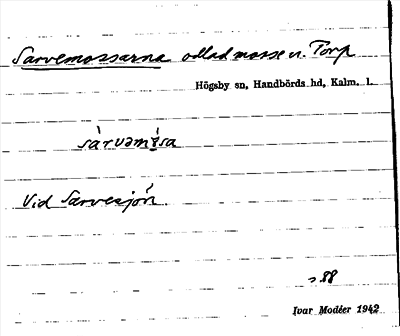 Sarvemossarna odlad mosse v. Torp
Högsby sn, Handbörds hd, Kalm. l.
Vid Sarvesjön.
s. 88
Ivar Modéer 1942